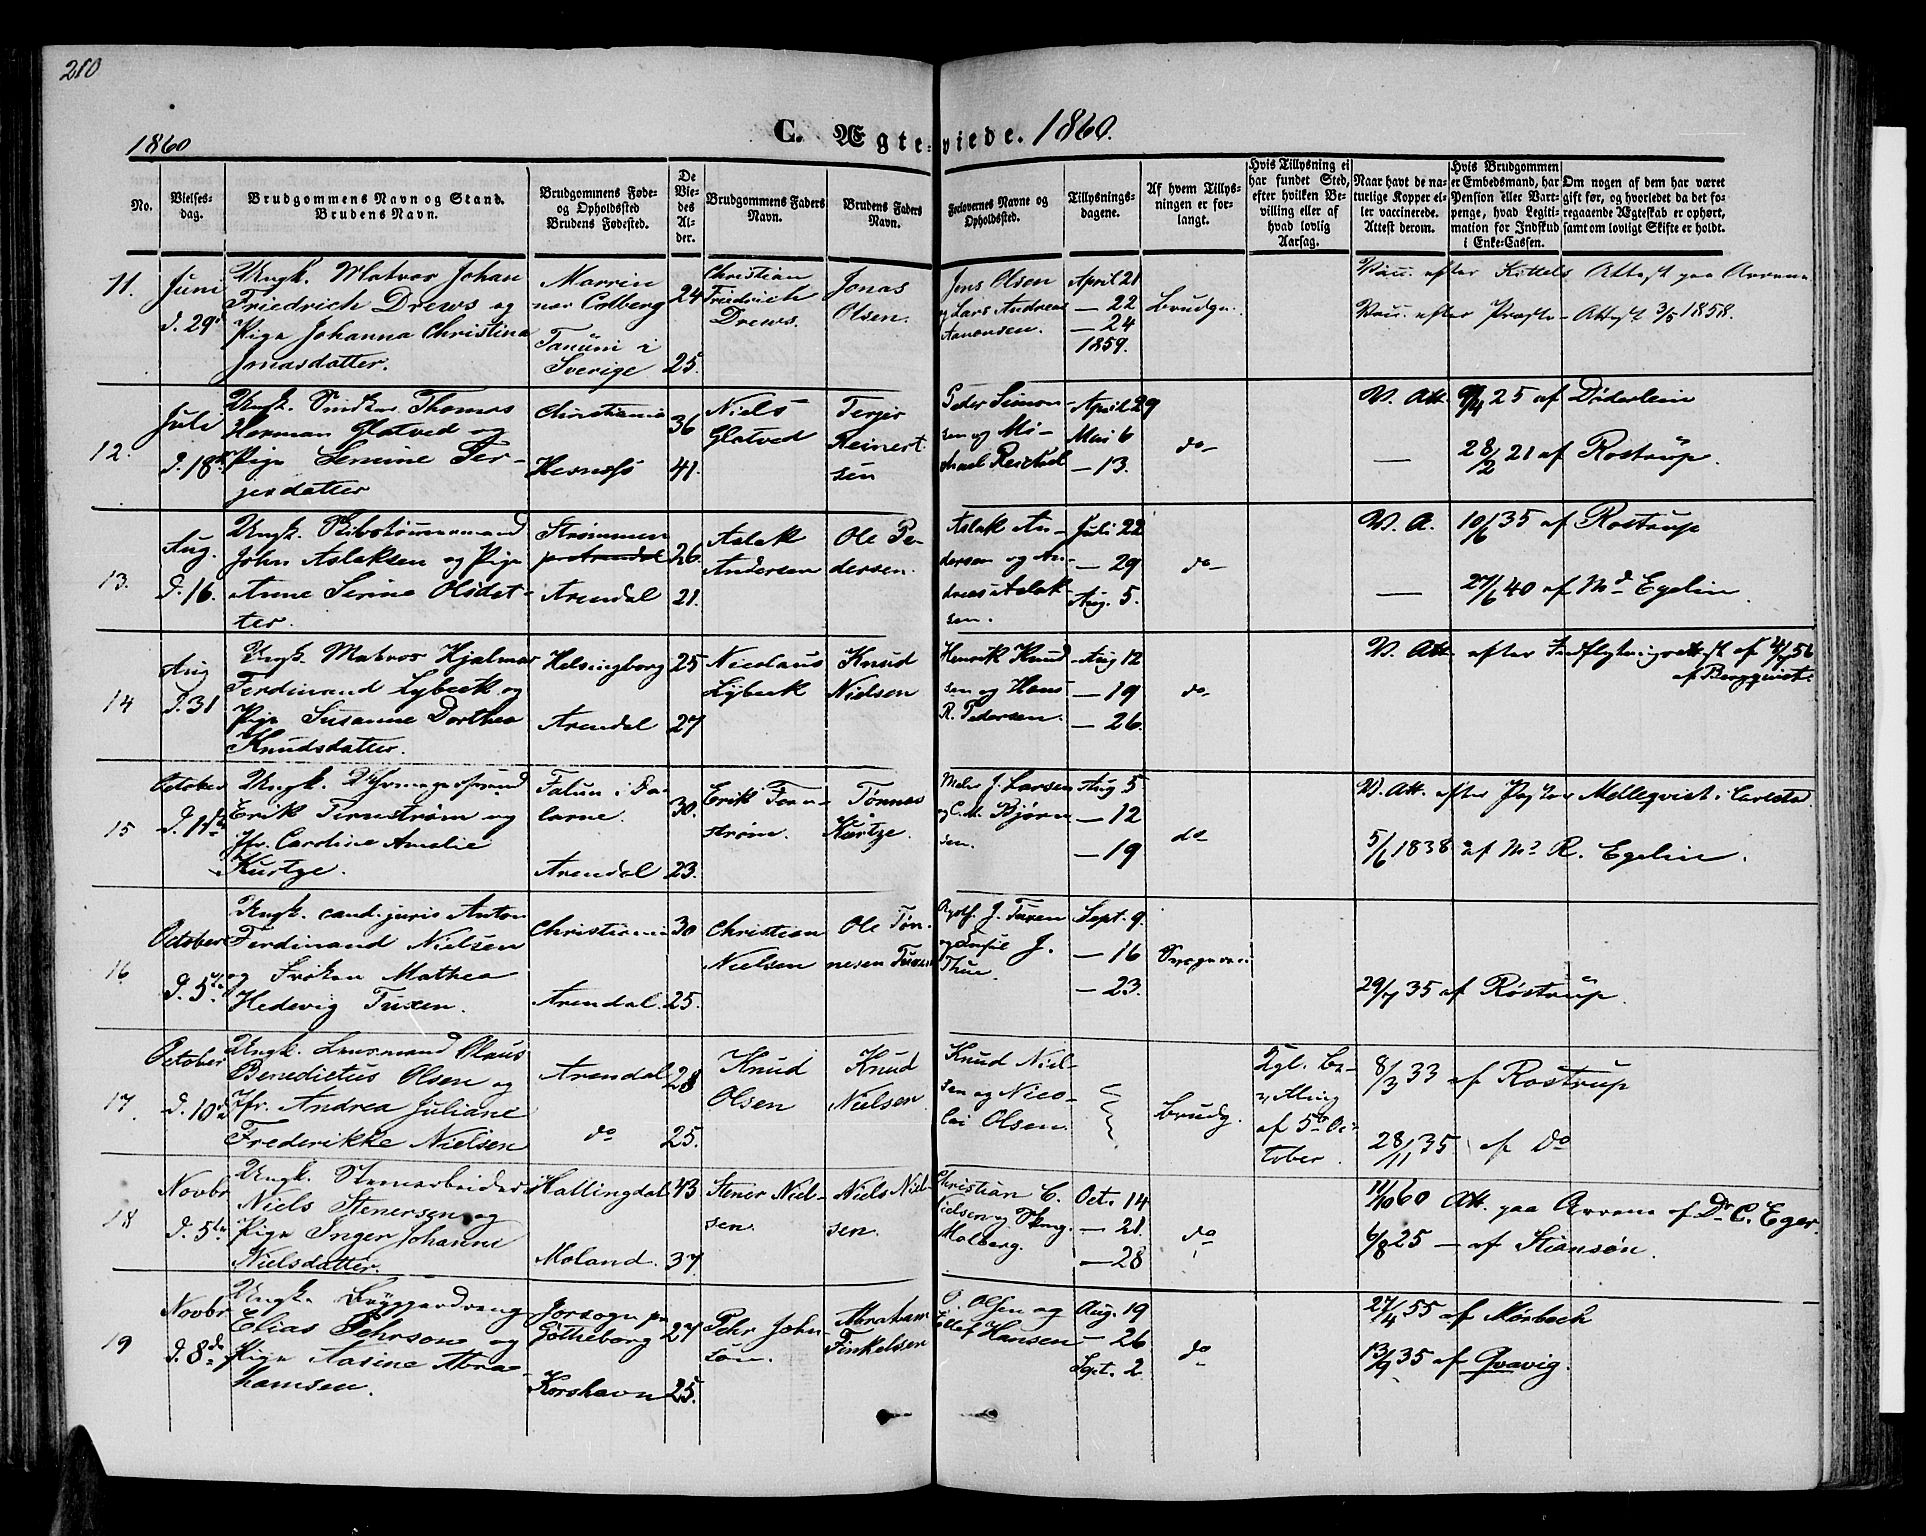 210
1860
C. Ægteviede. 1860.
No.
Vielses-
dag.
Brudgommens Navn og Stand.
Brudens Navn.
Brudgommens Føde-
og Opholdssted
Brudens Fødested.
De
Vie-
des
Al-
der.
Brudgommens Faders
Navn.
Brudens Faders
Navn.
Forlovernes Navne og
Opholdssted.
Tillysnings-
dagene.
Af hvem Tillys-
ningen er for-
langt.
Hvis Tillysning ei
har fundet Sted,
efter hvilken Be-
villing eller af
hvad lovlig
Aarsag.
Naar havt de na-
turlige Kopper el-
ler vaccinerede.
Attest derom.
Hvis Brudgommen
er Embedsmand, har
Pension eller Vart-
penge, hvad Legiti-
mation for Indskud
i Enke-Cassen.
Om nogen af dem har været
gift før, og hvorledet da det fo-
regaaende Ægteskab er ophørt,
samt om lovligt Skifte er holdt.
11.
Juni
d. 29
Ungk. Matros Johan
Friedrich Drews og
Pige Johanna Christina
Jonasdatter.
Marrin
nær Colberg
Tanum i
Sverige
24
25.
Christian
Friedrich
Drews.
Jonas
Olsen.
Jens Olsen
og Lars Andreas
Aanonsen.
April 21
— 22
— 24
1859.
Brudg.
Vacc. efter Kittels Attest paa Arene
Vacc. efter Præste-Attest 3/5 1858.
12.
Juli
d. 18
Ungk. Snedker Thomas
Herman Glatved og
Pige Lenine Ter-
jesdatter
Christiania
Hesnesø
36
41.
Niels
Glatved
Terjer
Reinert-
sen
Peder Simon-
sen og Mi-
chael Reichael
April 29
Mai 6
— 13.
do
V. Att. 9/4 25 af Døderlein
— 28/12 21 af Rostrup.
13.
Aug.
d. 16.
Ungk. Skibstømmermand
John Aslaksen og Pige
Anne Serine Olsdat-
ter.
Strømmen
pr Arendal
Arendal
26.
21.
Aslak
Andersen
Ole Pe-
dersen.
Aslak An-
dersen og An-
dreas Aslak-
sen.
Juli 22
— 29
Aug. 5.
do
V. A. 10/6 35 af Rostrup
— 27/6 40 af Md Egelin.
14
Aug
d. 31
Ungk. Matros Hjalmar
Ferdinand Lybeck og
Pige Susanne Dorthea
Knudsdatter.
Helsingborg
Arendal
25
27
Nicolaus
Lybeck
Knud
Nielsen
Henrik Knud-
sen og Hans
R. Pedersen.
Aug 12
— 19
— 26.
do
V. Att. efter Indflytningsattest af 4/7 56
af Bergqvist.
15
October
d. 1ste
Ungk.
Erik Fernstrøm og
Jfr. Caroline Amalie
Kurtze.
Falun i Da-
larne.
Arendal
30.
23.
Erik Fern-
strøm.
Tønnes
Kurtze.
Maler J. Larsen
og C. M. Bjørn-
sen.
Aug 5
— 12
— 19
do
V. Att. efter Pastor Mellqvist i Carlstad.
5/6 1838 af Md R. Egelin.
16
October
d. 5te
Ungk. cand. juris Anton
Ferdinand Nielsen
og Frøken Mathea
Hedevig Tuxen.
Christiania
Arendal
30
25.
Christian
Nielsen
Ole Tøn-
nesen Tuxen
J. Tuxen
og J.
Thue.
Sept. 9.
— 16
— 23.
29/7 35 af Rostrup.
17.
October
d. 10de
Ungk. Lensmand Olaus
Benedictus Olsen og
Jfr. Andrea Juliane
Frederikke Nielsen
Arendal
do
28
25.
Knud
Olsen
Knud
Nielsen
Knud Niel-
sen og Nico-
lai Olsen.
Brudg.
Kgl. Be-
villing
af 5 Oc-
tober.
8/3 33 af Rostrup
28/11 35 af Do
18
Novbr
d. 5te
Ungk. Stenarbeider
Niels Stenersen og
Pige Inger Johanne
Nielsdatter.
Hallingdal
Moland.
43
37.
Stener Niel-
sen.
Niels Niel-
sen.
Christian C.
Nielsen og
Malberg.
Oct. 14
— 21
— 28
do
11/10 60 Att. paa Arene af Dr C. Eger.
6/8 25 — af Stiansøn.
19
Novbr
d. 8de
Ungk. Bryggerdreng
Elias Pehrson og
Pige Aasine Abra-
hamsen.
Jorsogn pr
Götheborg
Korshavn
27
25.
Pehr John-
son.
Abraham
Finkelsen
O. Olsen og
Ellef Hansen
Aug. 19
— 26
Sept. 2
do
27/4 55 af Mørbech
13/9 35 af Qvavig.